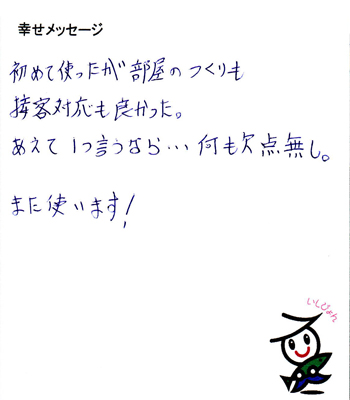 幸せメッセージ
初めて使ったが部屋のつくりも
接客対応も良かった。
あえて1つ言うなら…何も欠点無し。
また使います!
いしぴょん